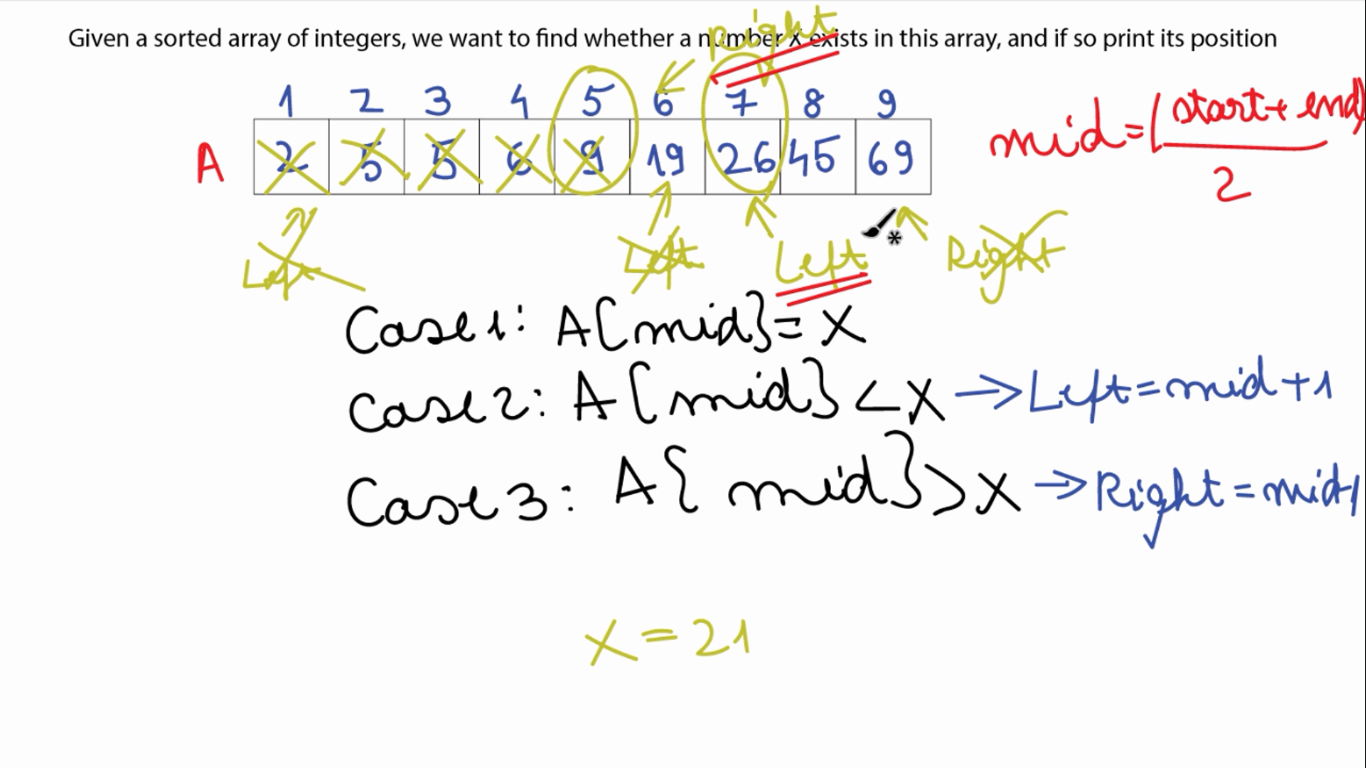 Given a sorted array of integers, we want to find whether a number X exists in this array, and if so print its position
Right
1 2 3 4 5 6 7 8 9
A 2 5 5 6 9 19 26 45 69
mid=(start+end)
2
Left Left Left Right
Case1: A[mid]=X
Case2: A[mid]<X →Left=mid+1
Case3: A[mid]>X →Right=mid-1
X=21